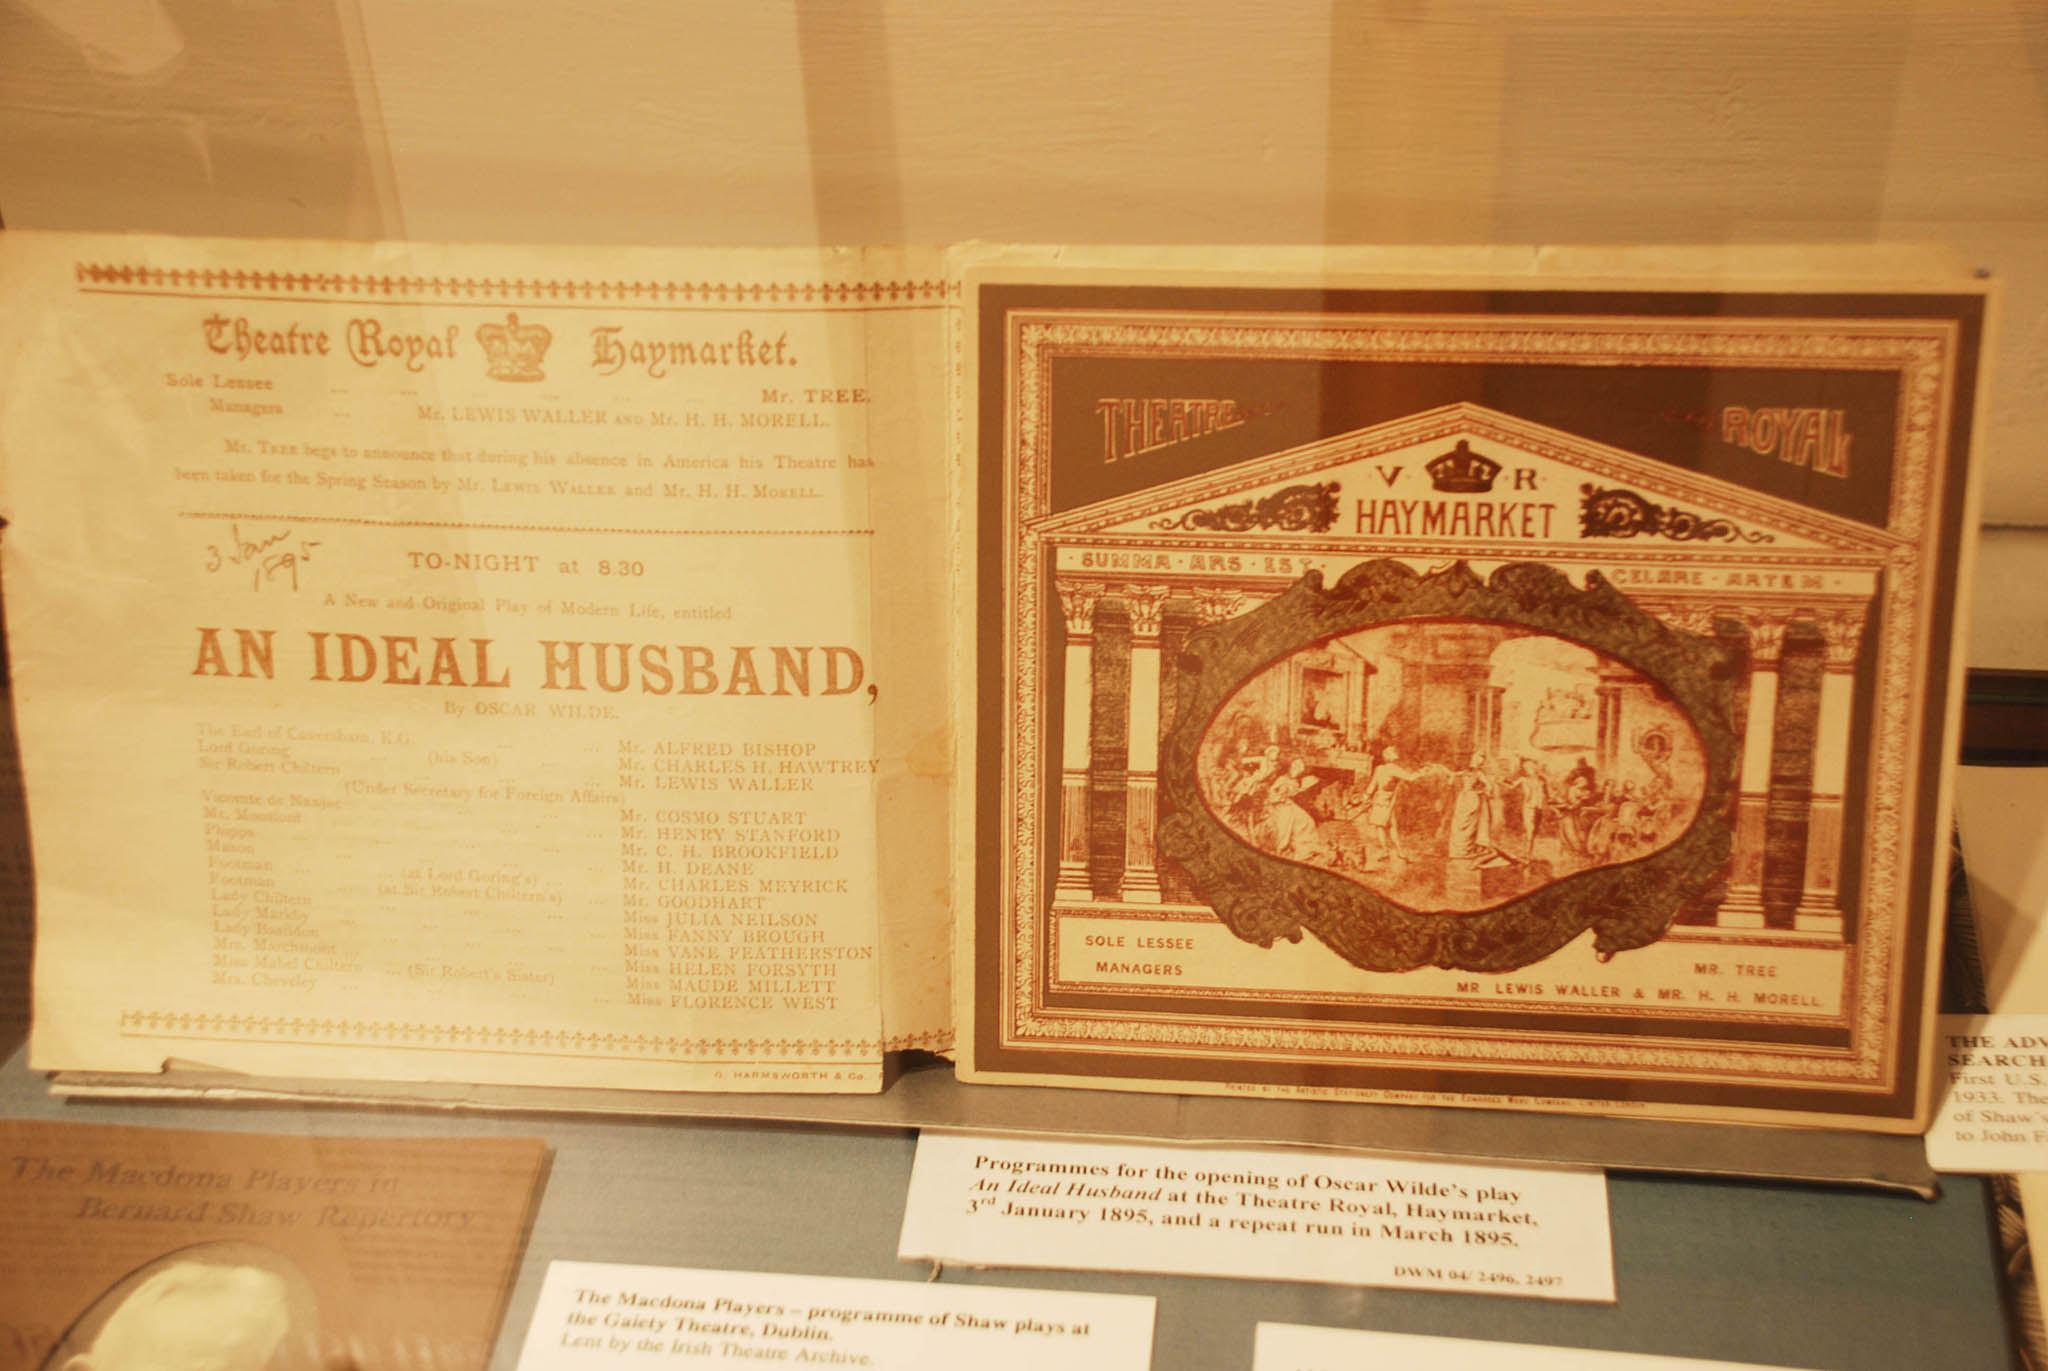 Theatre Royal Haymarket.
Sole Lessee ... ... ... ... ... Mr. TREE.
Managers ... Mr. LEWIS WALLER AND Mr. H. H. MORELL.
Mr. TREE begs to announce that during his absence in America his Theatre has
been taken for the Spring Season by Mr. LEWIS WALLER and Mr. H. H. MORELL.
3 Jan
1895
TO-NIGHT at 8.30
A New and Original Play of Modern Life, entitled
AN IDEAL HUSBAND,
By OSCAR WILDE.
The Earl of Caversham, K.G. ... ... Mr. ALFRED BISHOP
Lord Goring ... (his Son) ... Mr. CHARLES H. HAWTREY
Sir Robert Chiltern ... ... ... Mr. LEWIS WALLER
(Under Secretary for Foreign Affairs)
Vicomte de Nanjac ... ... Mr. COSMO STUART
Mr. Montford ... ... ... Mr. HENRY STANFORD
Phipps ... ... ... Mr. C. H. BROOKFIELD
Mason ... ... ... Mr. H. DEANE
Footman ... ... (at Lord Goring's) ... Mr. CHARLES MEYRICK
Footman ... (at Sir Robert Chiltern's) ... Mr. GOODHART
Lady Chiltern ... ... ... Miss JULIA NEILSON
Lady Markby ... ... ... Miss FANNY BROUGH
Lady Basildon ... ... ... Miss VANE FEATHERSTON
Mrs. Marchmont ... ... ... Miss HELEN FORSYTH
Miss Mabel Chiltern ... (Sir Robert's Sister) ... Miss MAUDE MILLETT
Mrs. Cheveley ... ... ... Miss FLORENCE WEST
G. HARMSWORTH & Co.,
THEATRE ROYAL
V R
HAYMARKET
SUMMA · ARS · EST · CELARE · ARTEM ·
SOLE LESSEE MR. TREE
MANAGERS MR LEWIS WALLER & MR. H. H. MORELL.
PRINTED BY THE ARTISTIC STATIONERY COMPANY FOR THE
Programmes for the opening of Oscar Wilde's play
An Ideal Husband at the Theatre Royal, Haymarket,
3rd January 1895, and a repeat run in March 1895.
DWM 04/ 2496, 2497
THE ADV
SEARCH
First U.S.
1933. The
of Shaw's
to John F
The Macdona Players in
Bernard Shaw Repertory
The Macdona Players – programme of Shaw plays at
the Gaiety Theatre, Dublin.
Lent by the Irish Theatre Archive.